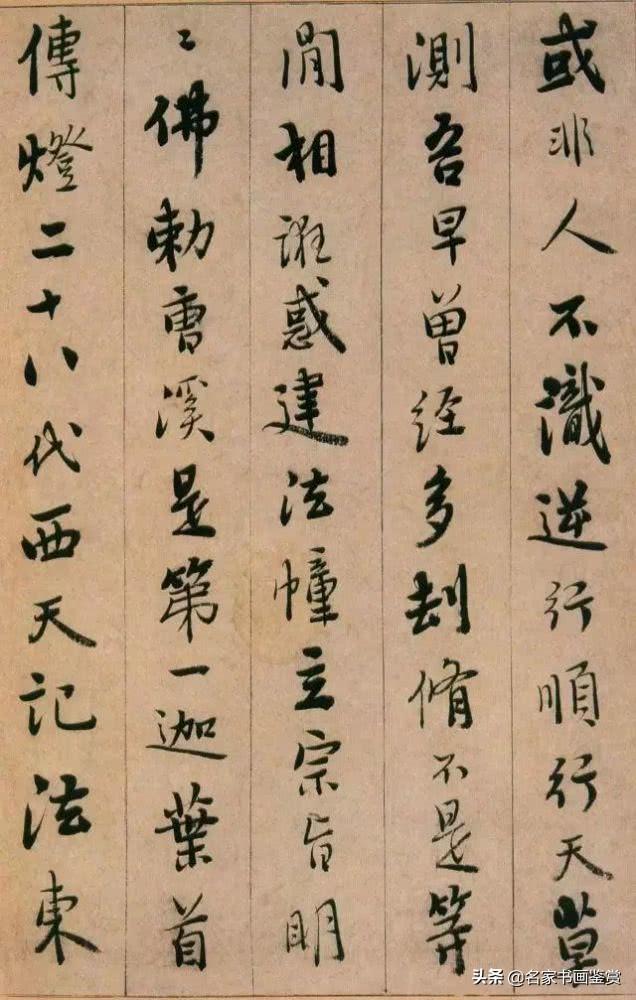 或非人不識逆行順行天莫
測吾早曾經多刦脩不是等
閒相誑惑建法幢立宗旨明
〻佛勅曹溪是第一迦葉首
傳燈二十八代西天記法東
头条 @名家书画鉴赏